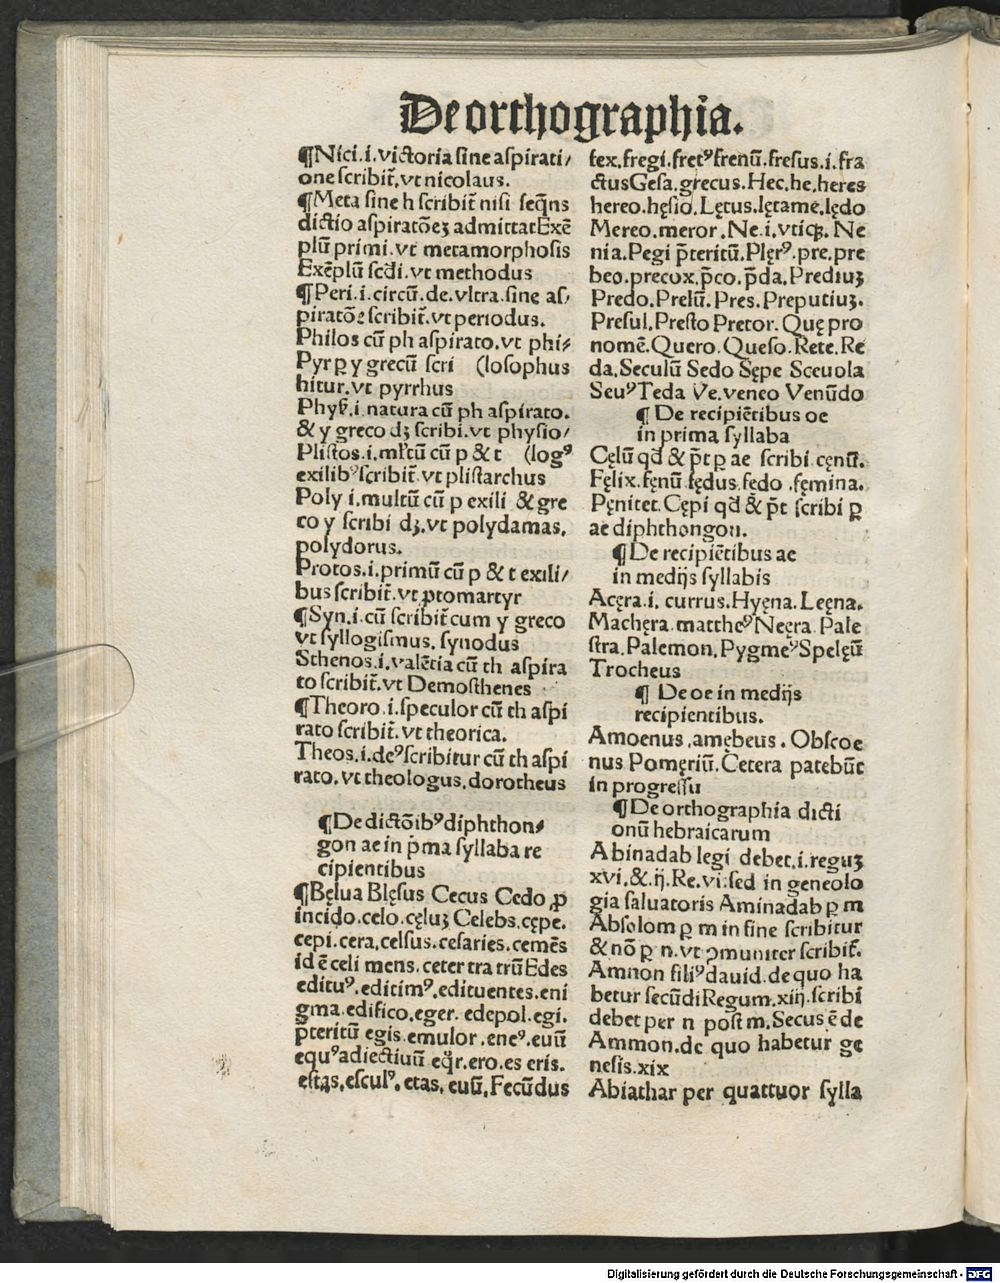 De orthographia.
¶Nici.i.victoria sine aspirati/
one scribit᷑.vt nicolaus.
¶Meta sine h scribit᷑ nisi seqñs
dictio aspiratõeʒ admittat Exẽ
plũ primi.vt metamorphosis
Exẽplũ scďi.vt methodus
¶Peri.i.circũ.de.vltra.sine as/
piratõe scribit᷑.vt periodus.
Philos cũ ph aspirato.vt phi⸗
Pyr ꝑ y grecũ scri (losophus
bitur.vt pyrrhus
Phyẜ.i natura cũ ph aspirato.
& y greco dʒ scribi.vt physio/
Plistos.i.mľtũ cũ p & t (logꝰ
exilibꝰ scribit᷑.vt plistarchus
Poly i.multũ cũ p exili & gre
co y scribi dʒ.vt polydamas.
polydorus.
Protos.i.primũ cũ p & t exili/
bus scribit᷑.vt ꝓtomartyr
¶Syn.i.cũ scribit᷑ cum y greco
vt syllogismus. synodus
Sthenos.i.valẽtia cũ th aspira
to scribit᷑.vt Demosthenes
¶Theoro.i.speculor cũ th aspi
rato scribit᷑.vt theorica.
Theos.i.deꝰ scribitur cũ th aspi
rato. vt theologus. dorotheus
¶De dictõibꝰ diphthon⸗
gon ae in p̃ma syllaba re
cipientibus
¶Bęlua Blęsus Cecus Cedo ꝓ
incido.celo.cęluʒ Celebs.cępe.
cepi.cera.celsus.cesaries.cemẽs
id ẽ celi mens.ceter tra trũ Edes
edituꝰ.editimꝰ.edituentes.eni
gma.edifico.eger. edepol.egi.
p̃teritũ egis.emulor.eneꝰ.euũ
equꝰ adiectiuũ eq̃r.ero.es eris.
estąs.esculꝰ. etas. eusũ.Fecũdus
fex.fregi.fretꝰ frenũ.fresus.i.fra
ctus Gesa.grecus.Hec.he.heres
hereo.hęsio.Lętus.lętame.lędo
Mereo.meror.Ne.i.vtiqʒ. Ne
nia.Pegi p̃teritũ.Plęrꝰ.pre.pre
beo.precox.p̃co.p̃da.Prediuʒ
Predo.Prelũ.Pres.Preputiuʒ.
Presul.Presto Pretor.Quę pro
nomẽ.Quero.Queso.Rete.Re
da.Seculũ Sedo Sępe Sceuola
Seuꝰ Teda Ve.veneo Venũdo
¶ De recipiẽtibus oe
in prima syllaba
Cęlũ qď & p̃t ꝑ ae scribi cęnũ.
Fęlix.fęnũ fędus.fedo.fęmina.
Pęnitet.Cępi qď & p̃t scribi ꝑ
ae diphthongon.
¶De recipiẽtibus ae
in medijs syllabis
Acęra.i. currus.Hyęna.Leęna.
Machęra.mattheꝰ Neęra Pale
stra.Palemon.Pygmeꝰ Spelęũ
Trocheus
¶ De oe in medijs
recipientibus.
Amoenus.amębeus.Obscoe
nus Pomęriũ.Cetera patebũt
in progressu
¶De orthographia dicti
onũ hebraicarum
Abinadab legi debet.i.reguʒ
xvi.&.ij.Re.vi:sed in geneolo
gia saluatoris Aminadab ꝑ m
Absolom ꝑ m in fine scribitur
& nõ ꝑ n.vt ꝯmuniter scribit᷑.
Amnon filiꝰ dauid.de quo ha
betur secũdi Regum.xiij.scribi
debet per n post m.Secus ẽ de
Ammon.de quo habetur ge
nesis.xix
Abiathar per quattuor sylla
Digitalisierung gefördert durch die Deutsche Forschungsgemeinschaft - DFG